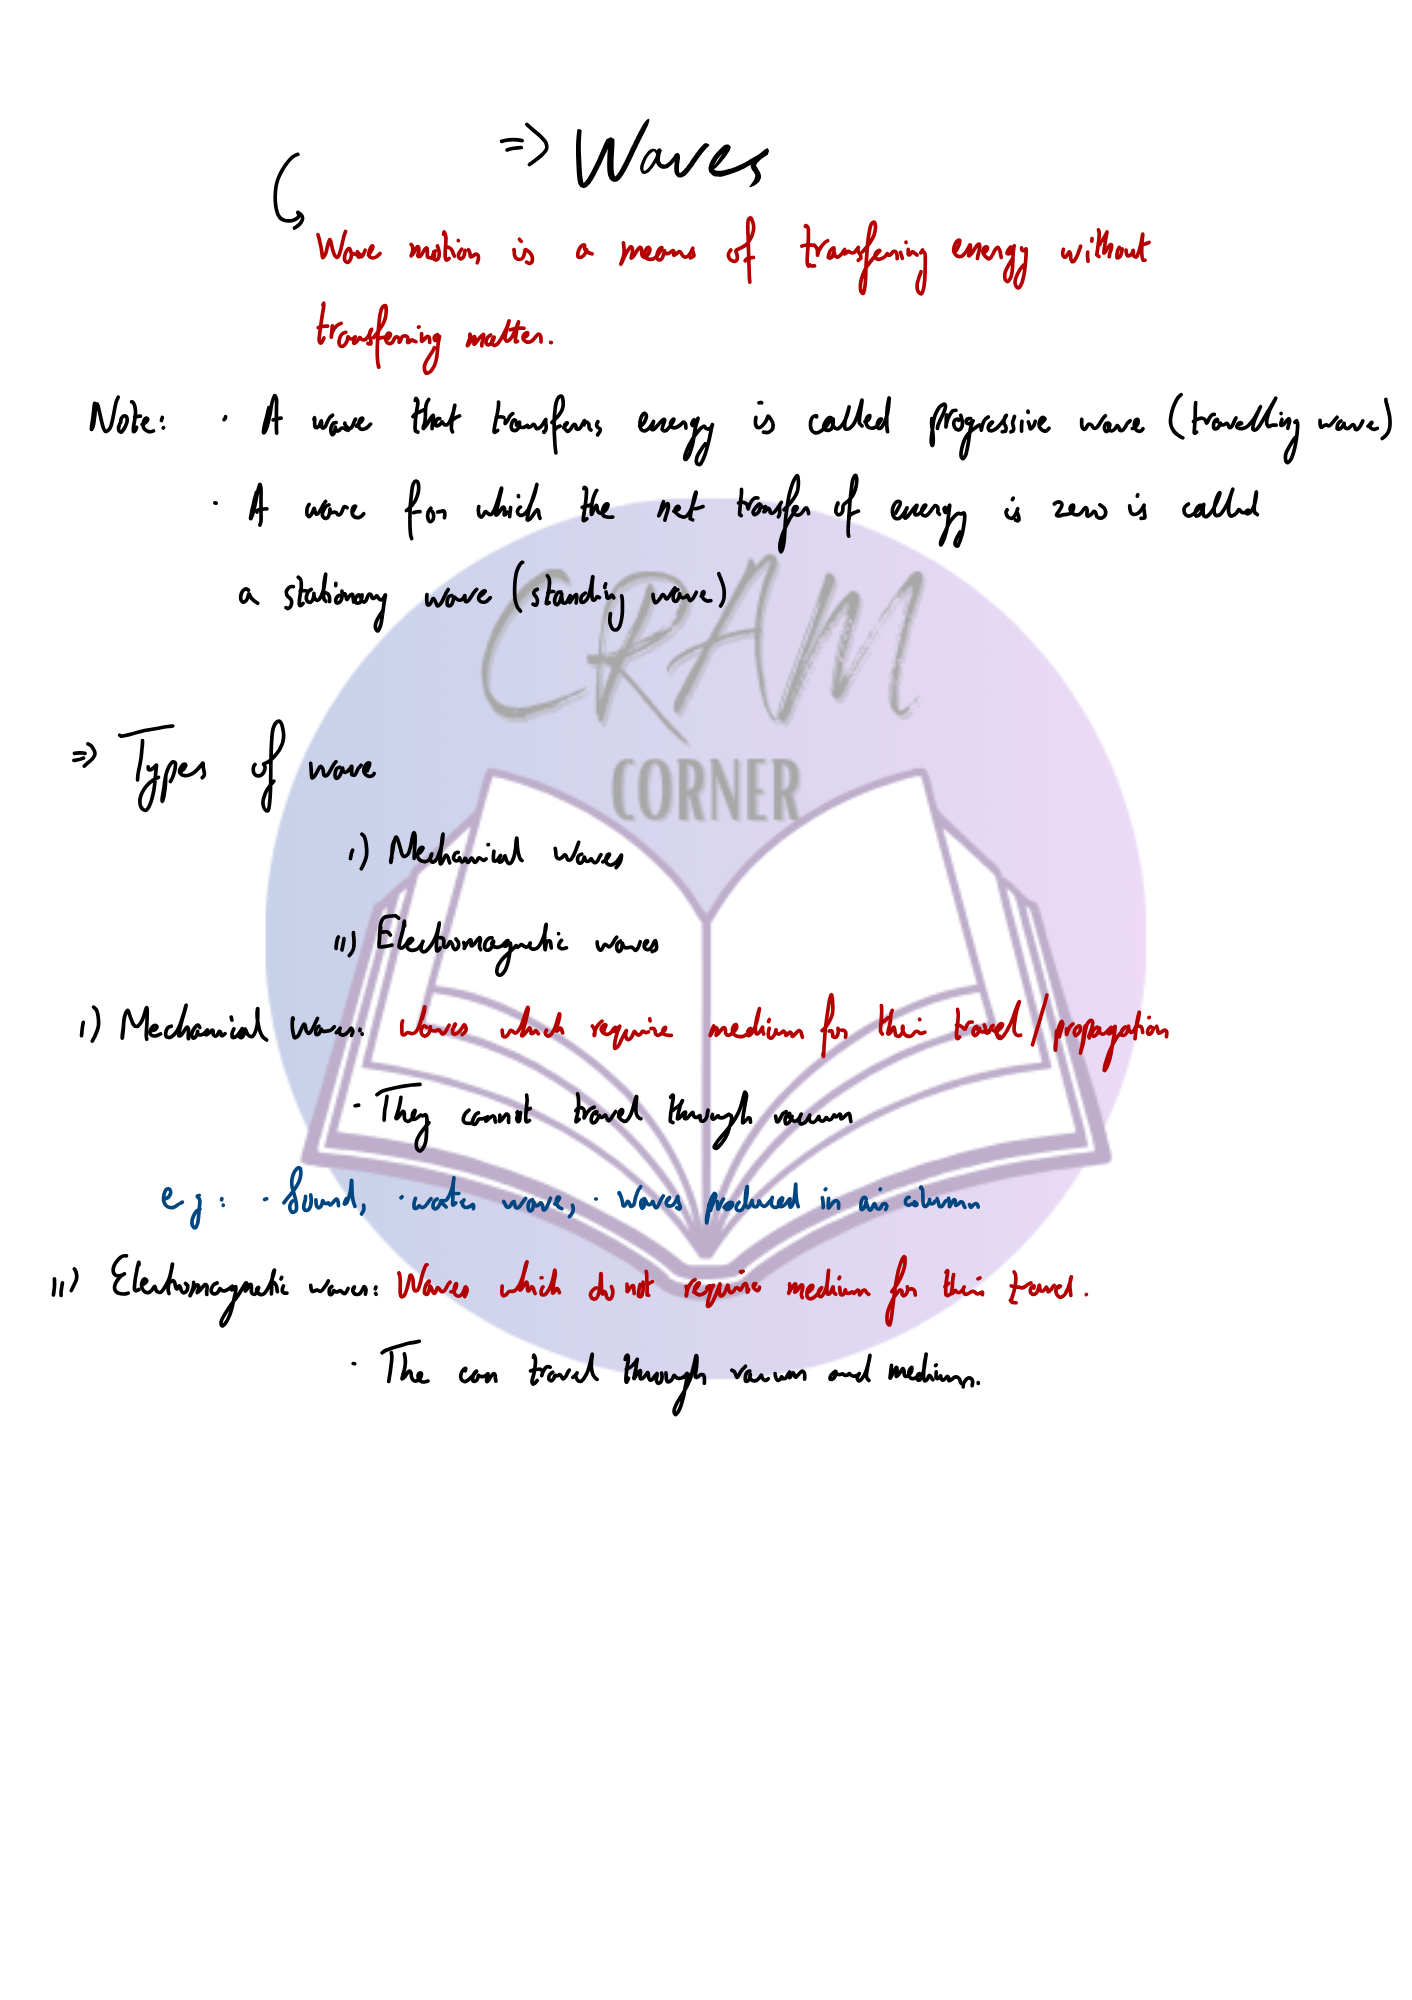 ⇒ Waves
Wave motion is a means of transferring energy without
transferring matter.
Note: · A wave that transfers energy is called progressive wave (travelling wave)
· A wave for which the net transfer of energy is zero is called
a stationary wave (standing wave)
CRAM
CORNER
⇒ Types of wave
i) Mechanical Waves
ii) Electromagnetic waves
i) Mechanical Waves: Waves which require medium for their travel/propagation
· They cannot travel through vacuum
eg: · Sound, · water wave, · Waves produced in air column
ii) Electromagnetic waves: Waves which do not require medium for their travel.
· The can travel through vacuum and medium.